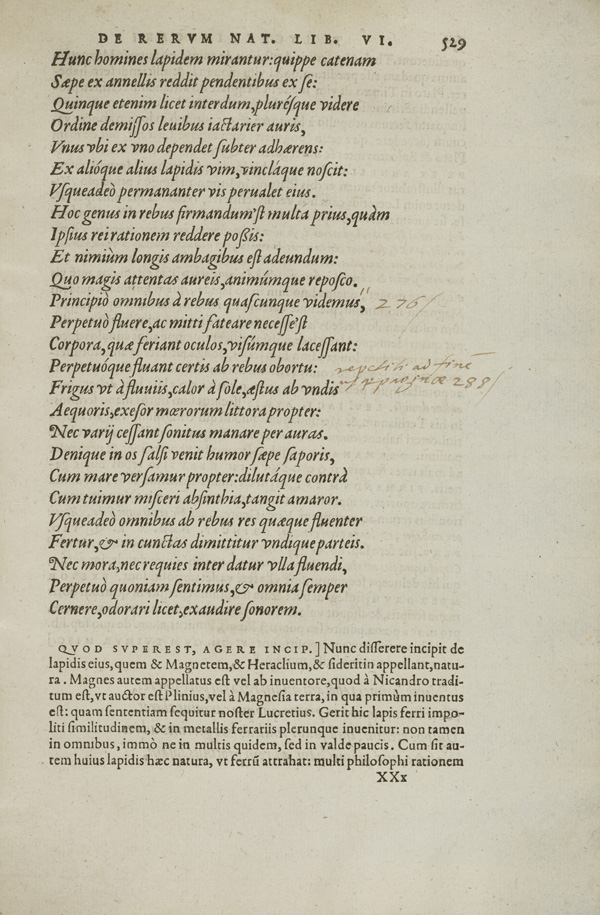 DE RERVM NAT. LIB. VI. 529
Hunc homines lapidem mirantur: quippe catenam
Sæpe ex annellis reddit pendentibus ex se:
Quinque etenim licet interdum, pluréſque videre
Ordine demiſſos leuibus iactarier auris,
Vnus vbi ex vno dependet ſubter adhærens:
Ex alióque alius lapidis vim, vincláque noſcit:
Vſqueadeò permananter vis perualet eius.
Hoc genus in rebus firmandum'ſt multa prius, quàm
Ipſius rei rationem reddere poßis:
Et nimiùm longis ambagibus eſt adeundum:
Quo magis attentas aureis, animúmque repoſco.
Principiò omnibus à rebus quaſcunque videmus, 276
Perpetuò fluere, ac mitti fateare neceſſe'ſt
Corpora, quæ feriant oculos, viſúmque laceſſant:
Perpetuóque fluant certis ab rebus obortu:
Frigus vt à fluuiis, calor à ſole, æſtus ab vndis 288
Aequoris, exeſor mœrorum littora propter:
Nec varij ceſſant ſonitus manare per auras.
Denique in os ſalſi venit humor ſæpe ſaporis,
Cum mare verſamur propter: dilutáque contrà
Cum tuimur miſceri abſinthia, tangit amaror.
Vſqueadeò omnibus ab rebus res quæque fluenter
Fertur, & in cunctas dimittitur vndique parteis.
Nec mora, nec requies inter datur vlla fluendi,
Perpetuò quoniam ſentimus, & omnia ſemper
Cernere, odorari licet, exaudire ſonorem.
QVOD SVPEREST, AGERE INCIP.] Nunc diſſerere incipit de
lapidis eius, quem & Magnetem, & Heraclium, & ſideritin appellant, natu-
ra. Magnes autem appellatus eſt vel ab inuentore, quod à Nicandro tradi-
tum eſt, vt auctor eſt Plinius, vel à Magneſia terra, in qua primùm inuentus
eſt: quam ſententiam ſequitur noſter Lucretius. Gerit hic lapis ferri impo-
liti ſimilitudinem, & in metallis ferrariis plerunque inuenitur: non tamen
in omnibus, immò ne in multis quidem, ſed in valde paucis. Cum ſit au-
tem huius lapidis hæc natura, vt ferrū attrahat: multi philoſophi rationem
XXx